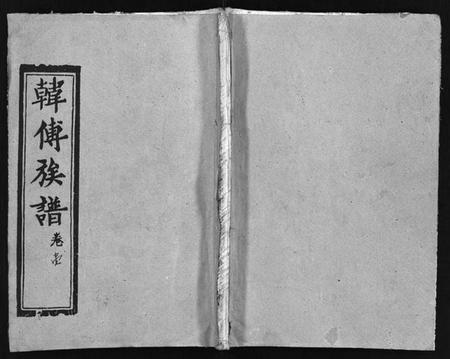 韓傅族譜
卷壱